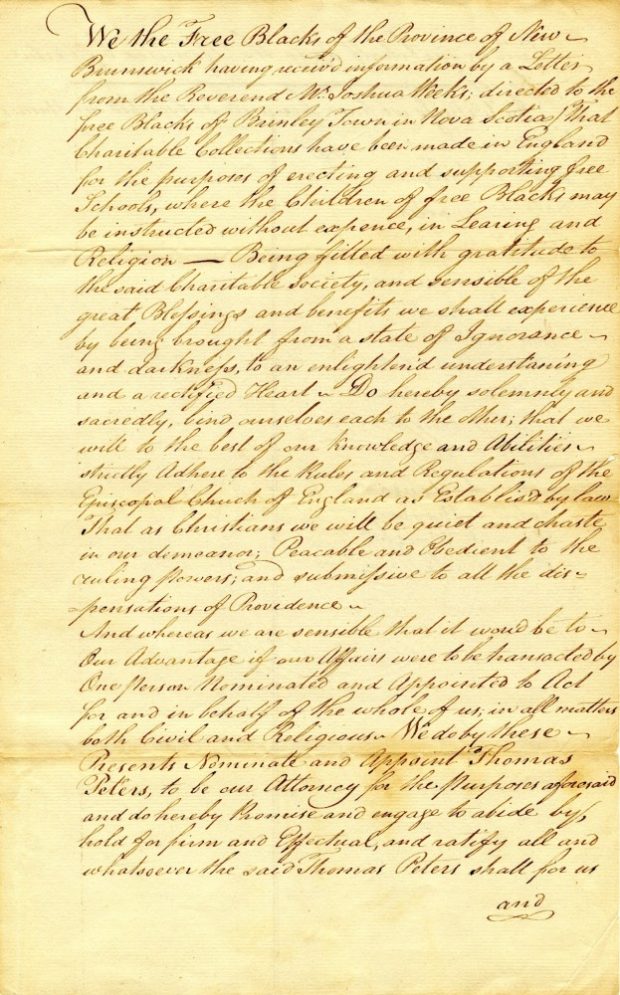 We the Free Blacks of the Province of New
Brunswick having receiv'd information by a Letter
from the Reverend Mr. Joshua Weeks; directed to the
free Blacks of Brinley Town in Nova Scotia, That
Charitable Collections have been made in England
for the purposes of erecting and supporting free
Schools, where the Children of free Blacks may
be instructed without expence, in Learing and
Religion — Being filled with gratitude to
the said Charitable Society, and sensible of the
great Blessings and benefits we shall experience
by being brought from a state of Ignorance
and darkness, to an enlighten'd understaning
and a rectified Heart Do hereby solemnly and
sacredly, bind ourselves each to the other; that we
will to the best of our knowledge and Abilities
strictly Adhere to the Rules and Regulations of the
Episcopal Church of England as Establis'd by law
That as Christians we will be quiet and chaste
in our demeanor; Peacable and Obedient to the
ruling Powers; and submissive to all the dis=
=pensations of Providence
And whereas we are sensible that it woud be to
Our Advantage if our Affairs were to be transacted by
One Person Nominated and Appointed to Act
for and in behalf of the whole of us; in all matters
both Civil and Religious We do by these
Presents Nominate and Appoint Thomas
Peters, to be our Attorney for the Purposes aforesaid
and do hereby Promise and engage to abide by,
hold for firm and Effectual, and ratify all and
whatsoever the said Thomas Peters shall for us
and